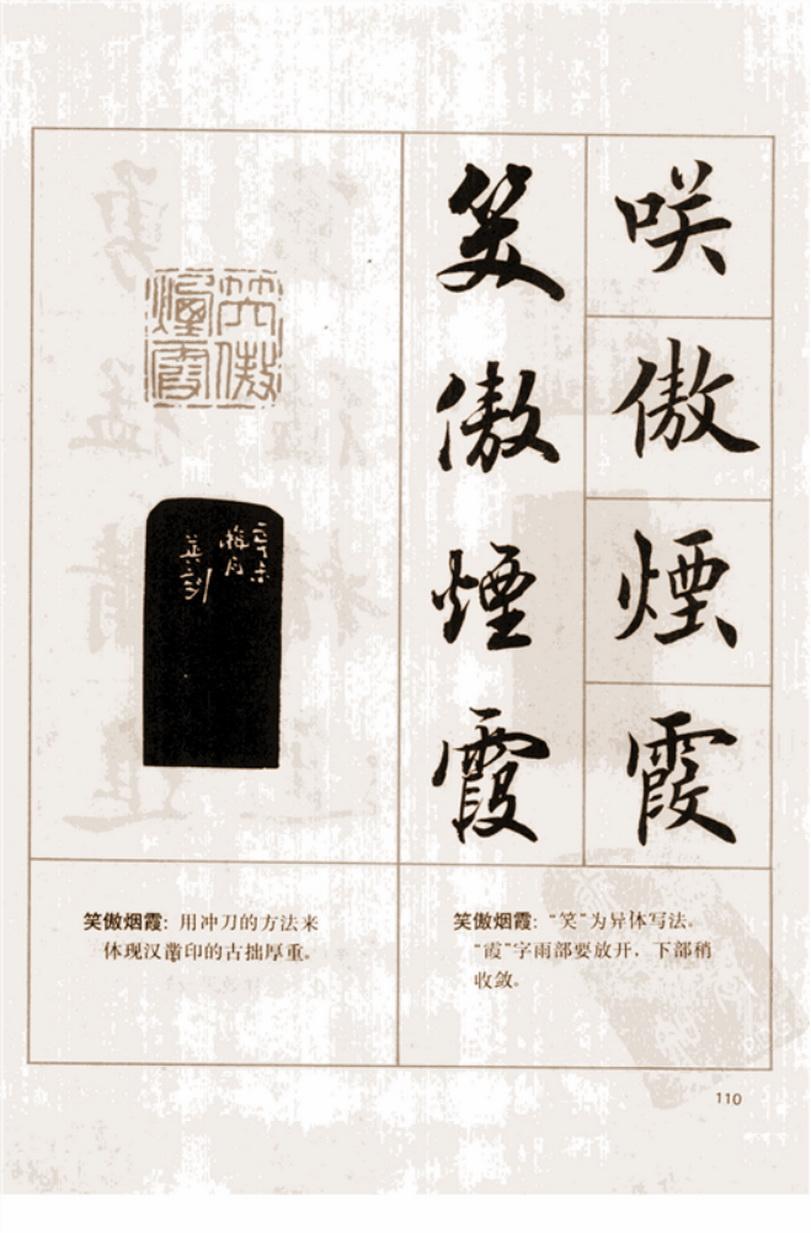 咲傲煙霞
笑傲煙霞
笑傲煙霞
笑傲烟霞：用冲刀的方法来
体现汉凿印的古拙厚重。
笑傲烟霞：“笑”为异体写法。
“霞”字雨部要放开，下部稍
收敛。
110